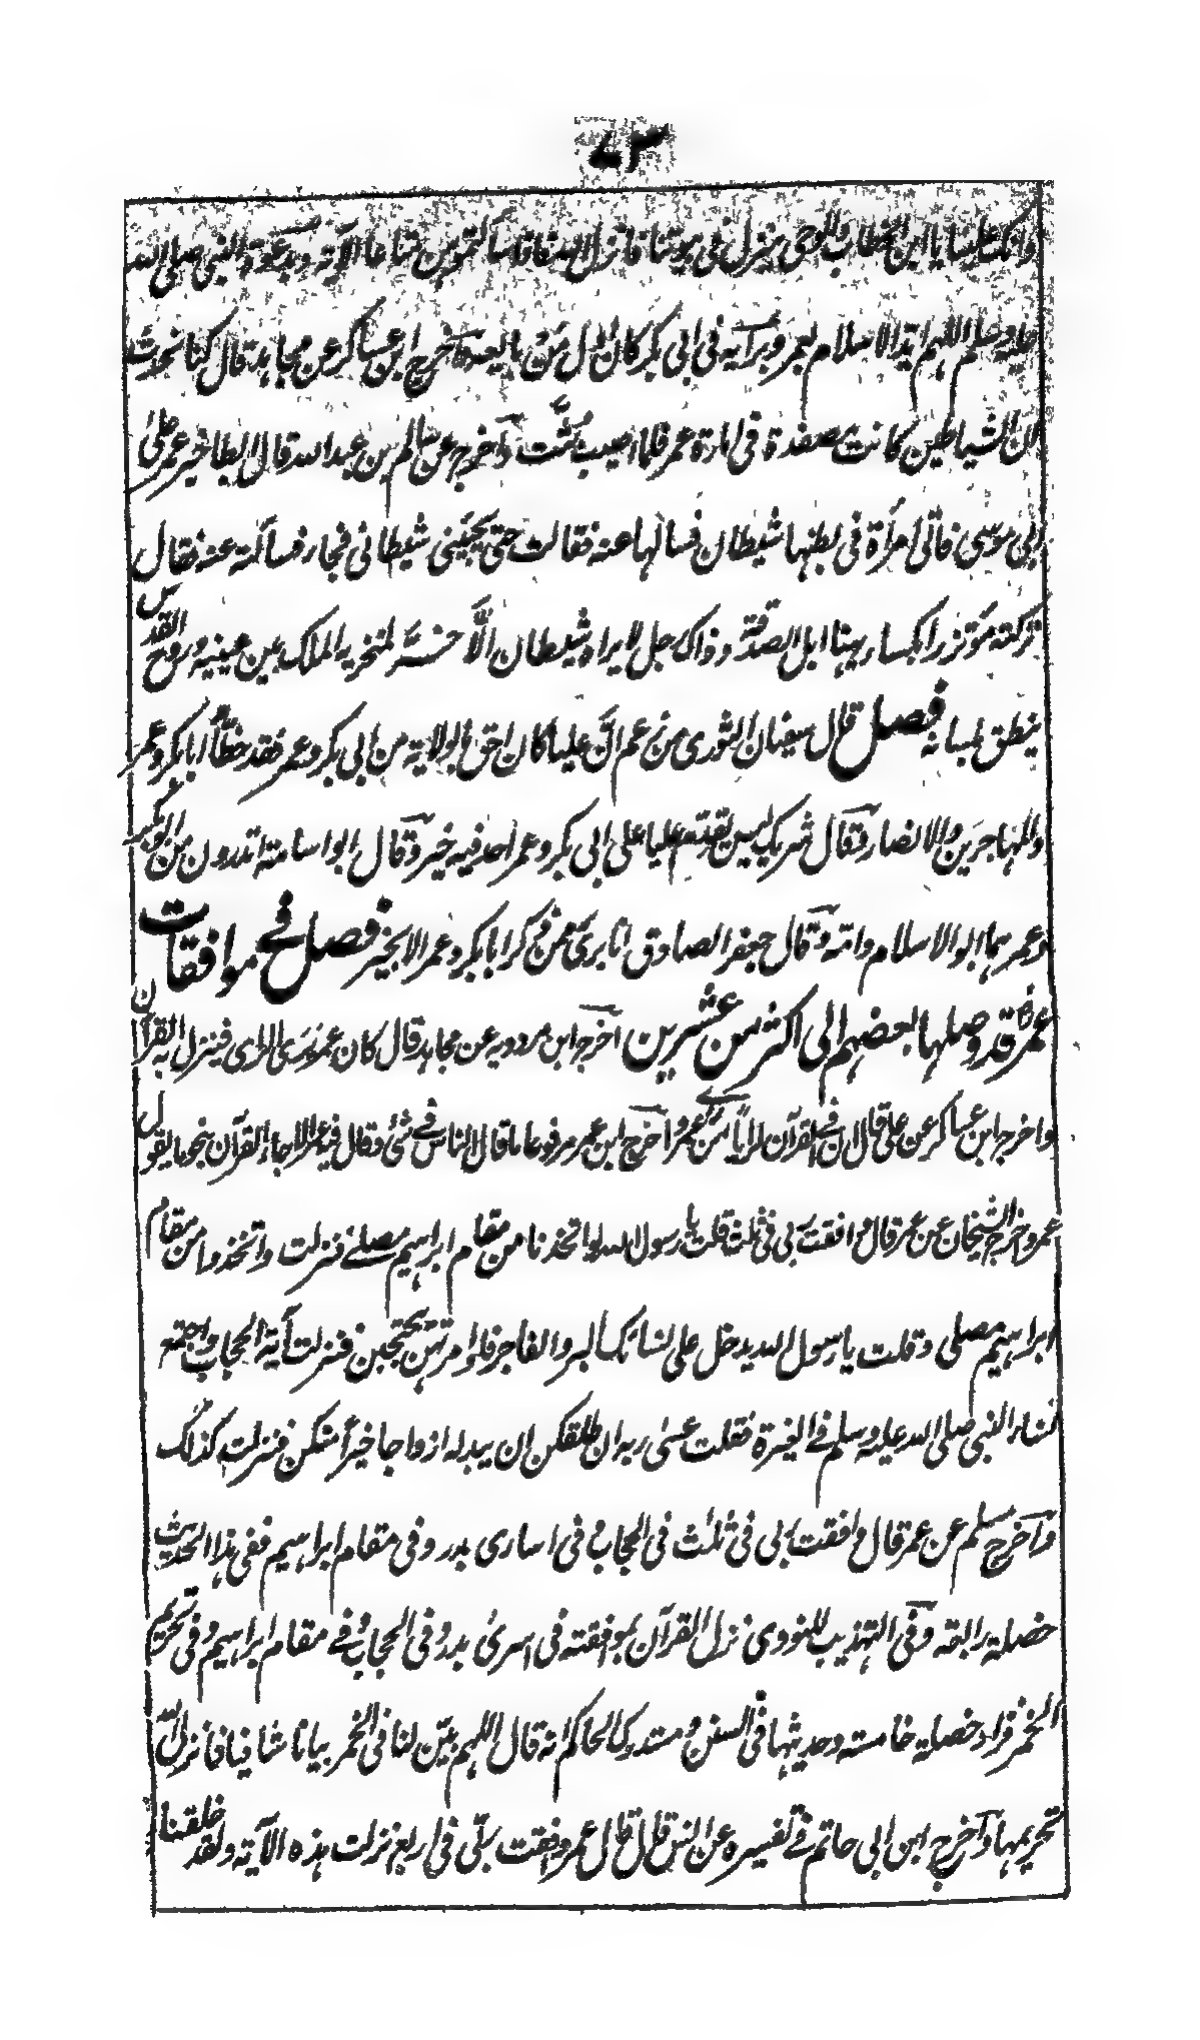 ٧٣
وانك علينا يا ابن الخطاب والوحي ينزل في بيوتنا فانزل الله فاذا سألتموهن متاعا الآية وبدعوة النبي صلى الله
عليه وسلم اللهم ايد الاسلام بعمر وبرأيه في ابي بكر كان اول من بايعه وأخرج ابن عساكر عن مجاهد قال كنا نحدث
ان الشياطين كانت مصفدة في امارة عمر فلما اصيب بثت وأخرج عن سالم بن عبد الله قال ابطا خبر عمر على
ابي موسى فاتى امرأة في بطنها شيطان فسالها عنه فقالت حتى يجيئني شيطاني فجاء فسألته عنه فقال
تركته مؤتزرا بكساء يهنا ابل الصدقة وذاك رجل لا يراه شيطان الا خر لمنخريه الملك بين عينيه وروح القدس
ينطق بلسانه فصل قال سفيان الثوري من زعم ان عليا كان احق بالولاية من ابي بكر وعمر فقد خطأ ابا بكر وعمر
والمهاجرين والانصار وقال شريك ليس يقدم عليا على ابي بكر وعمر احد فيه خير وقال ابو اسامة اتدرون من ابو بكر
وعمر هما ابو الاسلام وامه وقال جعفر الصادق انا برئ ممن ذكر ابا بكر وعمر الا بخير فصل في موافقات
عمر رض قد وصلها بعضهم الى اكثر من عشرين أخرج ابن مردويه عن مجاهد قال كان عمر يرى الراى فينزل به القرآن
واخرج ابن عساكر عن علي قال ان في القرآن لرايا من راي عمر وأخرج ابن عمر مرفوعا ما قال الناس في شئ وقال فيه عمر الا جاء القرآن بنحو ما يقول
عمر وأخرج الشيخان عن عمر قال وافقت ربي في ثلث قلت يا رسول الله لو اتخذنا من مقام ابراهيم مصلى فنزلت واتخذوا من مقام
ابراهيم مصلى وقلت يا رسول الله يدخل على نسائك البر والفاجر فلو امرتهن يحتجبن فنزلت آية الحجاب واجتمع
نساء النبي صلى الله عليه وسلم في الغيرة فقلت عسى ربه ان طلقكن ان يبدله ازواجا خيرا منكن فنزلت كذلك
وأخرج مسلم عن عمر قال وافقت ربي في ثلث في الحجاب في اسارى بدر وفي مقام ابراهيم ففي هذا الحديث
خصلة رابعة وفي التهذيب للنووي نزل القرآن بموافقته في اسرى بدر وفي الحجاب وفي مقام ابراهيم وفي تحريم
الخمر فزاد خصلة خامسة وحديثها في السنن ومستدرك الحاكم انه قال اللهم بين لنا في الخمر بيانا شافيا فانزل الله
تحريمها وأخرج ابن ابي حاتم في تفسيره عن انس قال قال عمر وافقت ربي في اربع نزلت هذه الآية ولقد خلقنا